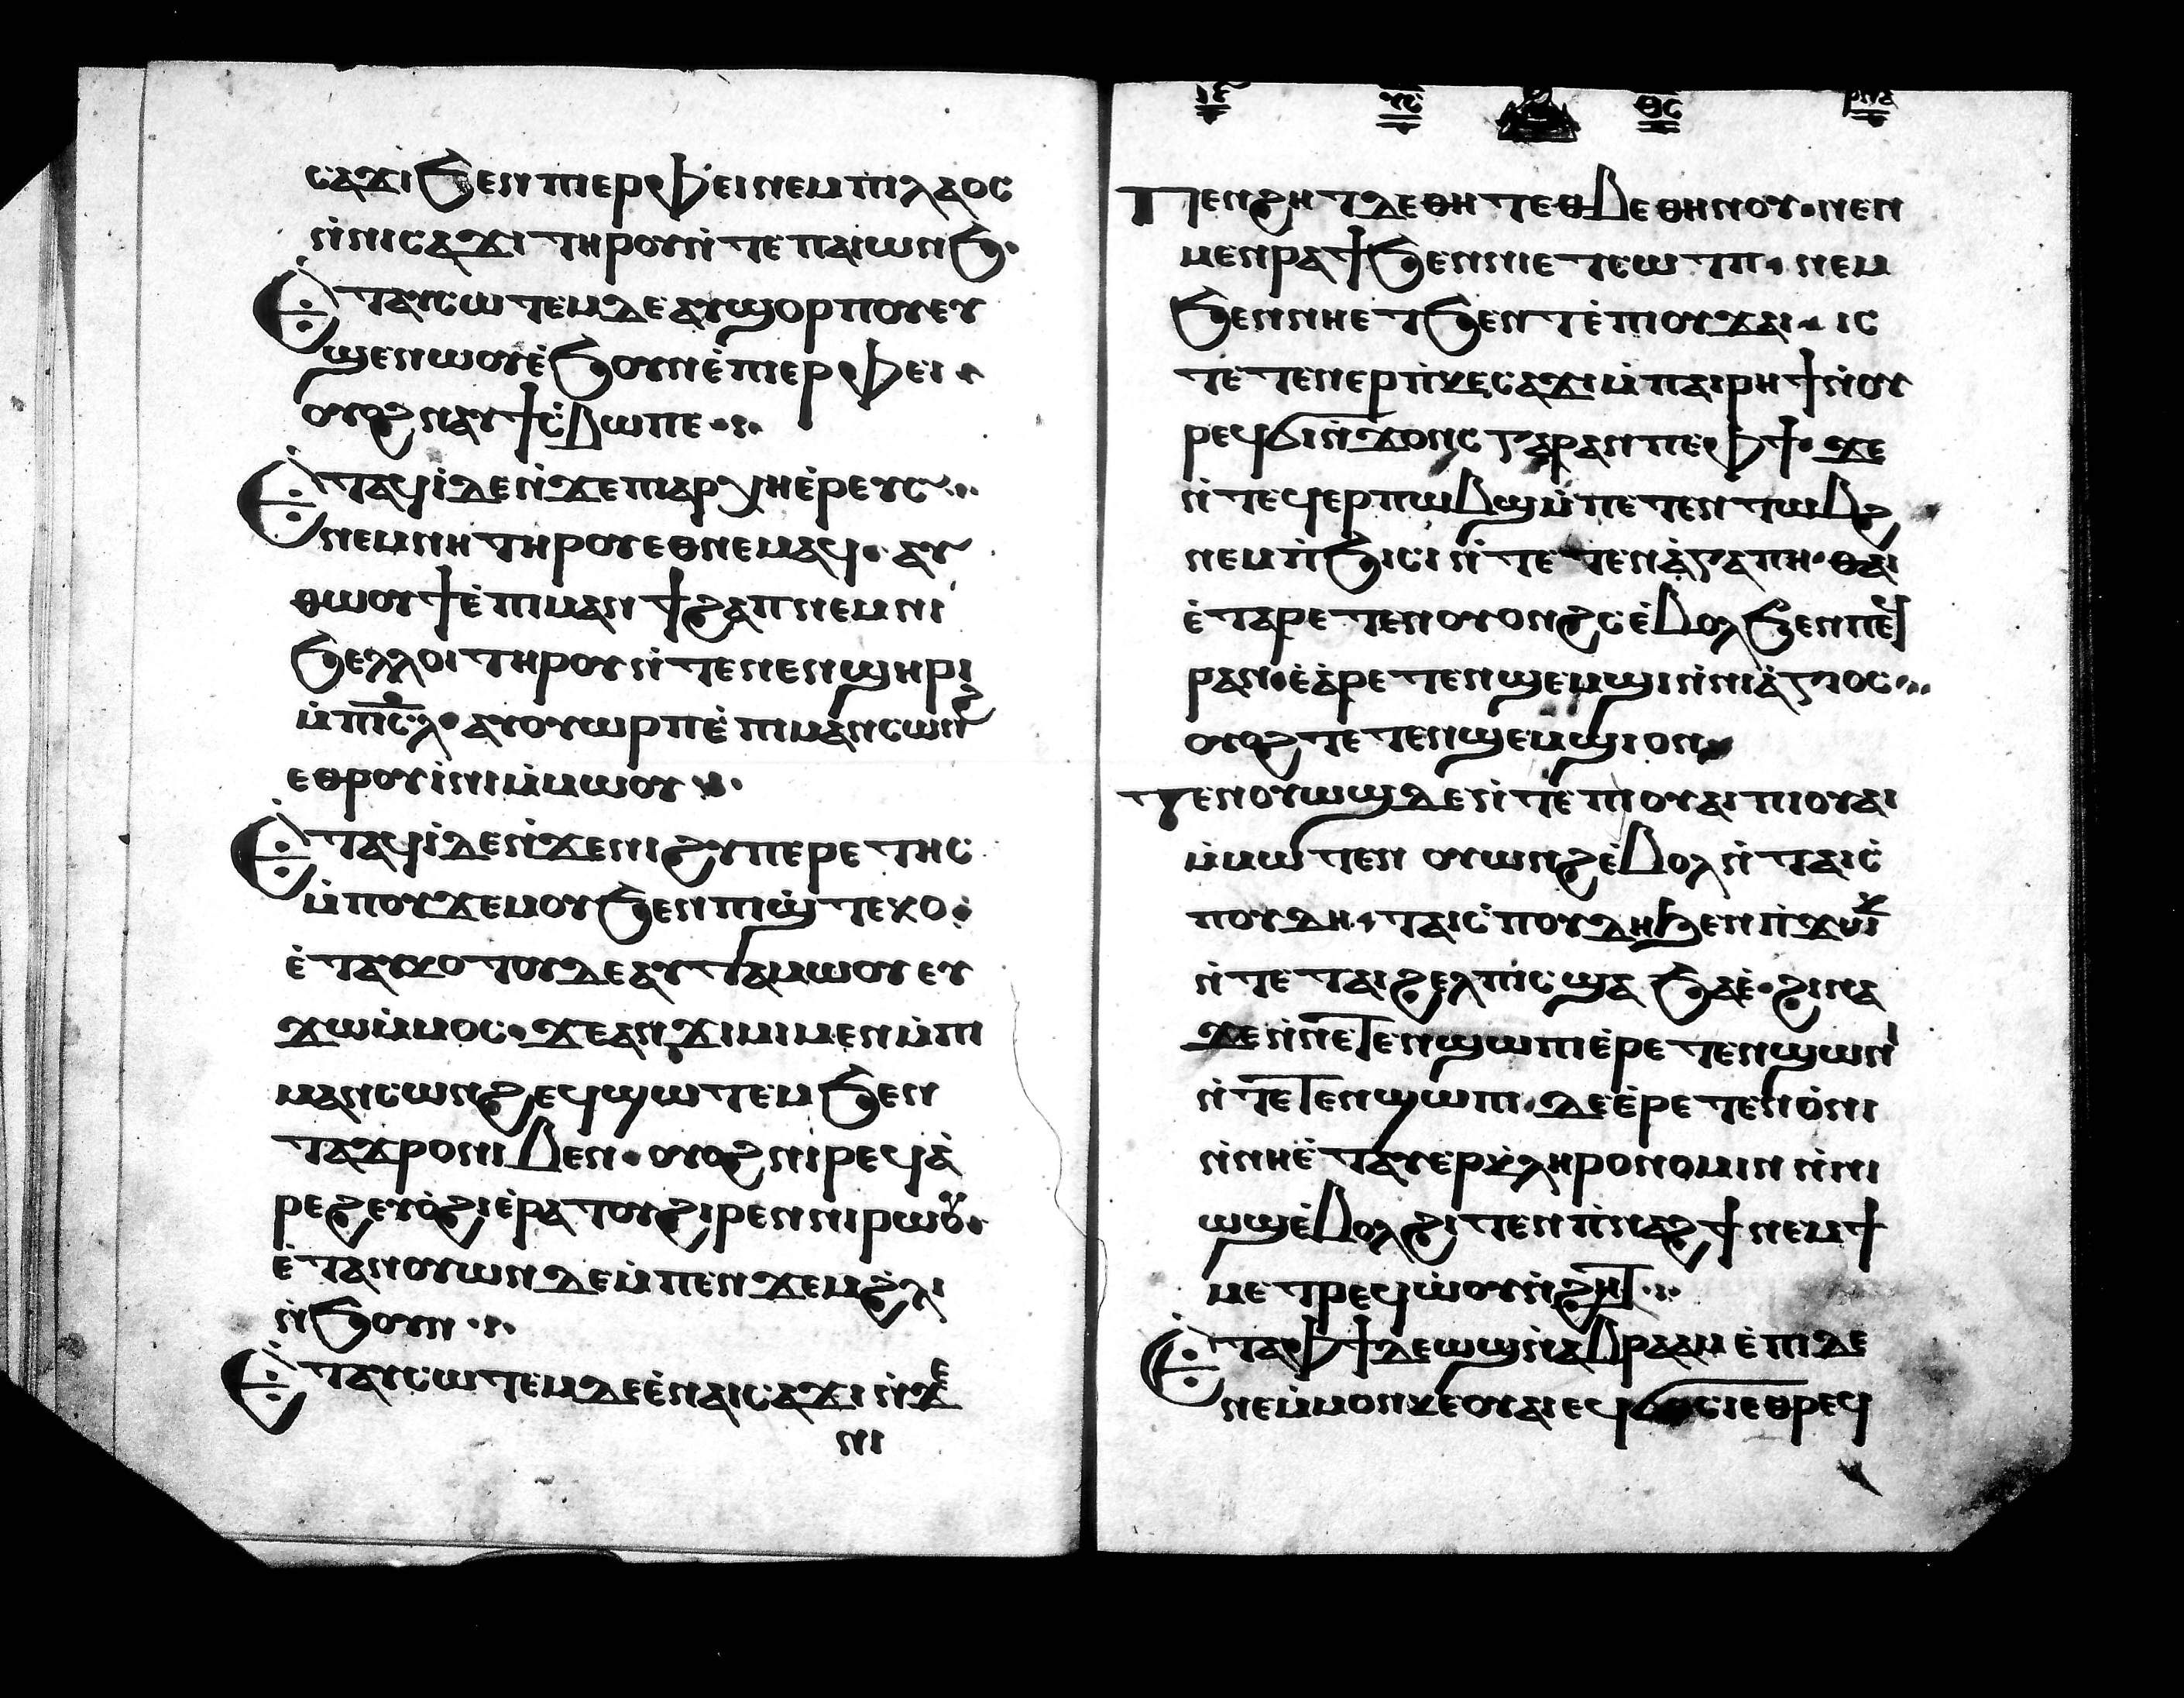 ⲥⲁϫⲓ ϧⲉⲛ ⲡⲓⲉⲣⲫⲉⲓ ⲛⲉⲙ ⲡⲓⲗⲁⲟⲥ
ⲛ̇ⲛⲓⲥⲁϫⲓ ⲧⲏⲣⲟⲩ ⲛ̇ⲧⲉ ⲡⲁⲓⲱⲛϧ·
Ⲉ̇ⲧⲁⲩⲥⲱⲧⲉⲙ ⲇⲉ ⲁⲩϣⲟⲣⲡⲟⲩ ⲉⲩ
ϣⲉⲛⲱⲟⲩ ⲉ̇ϧⲟⲩⲛ ⲉ̇ⲡⲓⲉⲣⲫⲉⲓ·
ⲟⲩⲟϩ ⲛⲁⲩϯⲥ̇ⲃⲱ ⲡⲉ ·:·
Ⲉ̇ⲧⲁϥⲓ̇ ⲇⲉ ⲛ̇ϫⲉ ⲡⲓⲁⲣⲭⲏⲉ̇ⲣⲉⲩⲥ ·:·
ⲛⲉⲙ ⲛⲏ ⲧⲏⲣⲟⲩ ⲉⲑⲛⲉⲙⲁϥ· ⲁⲩ
ⲑⲱⲟⲩϯ ⲉ̇ⲡⲓⲙⲁⲛϯϩⲁⲡ ⲛⲉⲙ ⲛⲓ
ϧⲉⲗⲗⲟⲓ ⲧⲏⲣⲟⲩ ⲛ̇ⲧⲉ ⲛⲉⲛϣⲏⲣⲓ
ⲙ̇ⲡⲓⲥ̅ⲗ· ⲁⲩⲟⲩⲱⲣⲡ ⲉ̇ⲡⲓⲙⲁⲛⲥⲱⲛϩ
ⲉⲑⲣⲟⲩⲓ̇ⲛⲓ ⲙ̇ⲙⲱⲟⲩ ·:·
Ⲉ̇ⲧⲁϥⲓ̇ ⲇⲉ ⲛ̇ϫⲉ ⲛⲓϩⲩⲡⲉⲣⲉⲧⲏⲥ
ⲙ̇ⲡⲟⲩϫⲉⲙⲟⲩ ϧⲉⲛ ⲡⲓϣ̇ⲧⲉⲕⲟ·
ⲉ̇ⲧⲁⲩⲕⲟⲧⲟⲩ ⲇⲉ ⲁⲩⲧⲁⲙⲱⲟⲩ ⲉⲩ
ϫⲱ ⲙ̇ⲙⲟⲥ· ϫⲉ ⲁⲛϫⲓⲙⲓ ⲙⲉⲛ ⲙ̇ⲡⲓ
ⲙⲁⲛⲥⲱⲛϩ ⲉϥϣⲱⲧⲉⲙ ϧⲉⲛ
ⲧⲁϫⲣⲟ ⲛⲓⲃⲉⲛ· ⲟⲩⲟϩ ⲛⲓⲣⲉϥⲁ̇
ⲣⲉϩ ⲉⲩⲟ̇ϩⲓ ⲉ̇ⲣⲁⲧⲟⲩ ϩⲓⲣⲉⲛ ⲛⲓⲣⲱⲟⲩ·
ⲉ̇ⲧⲁⲛⲟⲩⲱⲛ ⲇⲉ ⲙ̇ⲡⲉⲛϫⲉⲙ ϩ̇ⲗⲓ
ⲛ̇ϧⲟⲩⲛ ·:·
Ⲉ̇ⲧⲁⲩⲥⲱⲧⲉⲙ ⲇⲉ ⲉ̇ⲛⲁⲓⲥⲁϫⲓ ⲛ̇ϫⲉ
ⲛⲓ
ⲑⲥ
Ⲡⲉⲛϩⲏⲧ ⲇⲉ ⲑⲏⲧ ⲉⲑⲃⲉ ⲑⲏⲛⲟⲩ· ⲛⲉⲛ
ⲙⲉⲛⲣⲁϯ ϧⲉⲛ ⲛⲓⲉⲧⲥⲱⲧⲡ· ⲛⲉⲙ
ϧⲉⲛ ⲛⲏⲉⲧϧⲉⲛⲧ ⲉ̇ⲡⲓⲟⲩϫⲁⲓ· ⲓⲥ
ⲧⲉ ⲧⲉⲛⲉⲣⲡ̇ⲕⲉⲥⲁϫⲓ ⲙ̇ⲡⲁⲓⲣⲏϯ ⲛ̇ⲟⲩ
ⲣⲉϥϭⲓⲛ̇ϫⲟⲛⲥ ⲅⲁⲣ ⲁⲛ ⲡⲉ ⲫϯ· ϫⲉ
ⲛ̇ⲧⲉϥⲉⲣⲡⲱⲃϣ ⲙ̇ⲡⲉⲧⲉⲛⲧⲱⲃϩ
ⲛⲉⲙ ⲡ̇ϧⲓⲥⲓ ⲛ̇ⲧⲉ ⲧⲉⲛⲁ̇ⲅⲁⲡⲏ· ⲑⲁⲓ
ⲉ̇ⲧⲁⲣⲉⲧⲉⲛⲟⲩⲟⲛϩⲥ ⲉ̇ⲃⲟⲗ ϧⲉⲛ ⲡⲉϥ
ⲣⲁⲛ· ⲉ̇ⲁ̇ⲣⲉⲧⲉⲛϣⲉⲙϣⲓ ⲛ̇ⲛⲓⲁ̇ⲅⲓⲟⲥ ·:·
ⲟⲩⲟϩ ⲧⲉⲧⲉⲛϣⲉⲙϣⲓ ⲟⲛ·
Ⲧⲉⲛⲟⲩⲱϣ ⲇⲉ ⲛ̇ⲧⲉ ⲡⲓⲟⲩⲁⲓ ⲡⲓⲟⲩⲁⲓ
ⲙ̇ⲙⲱⲧⲉⲛ ⲟⲩⲱⲛϩ ⲉ̇ⲃⲟⲗ ⲛ̇ⲧⲁⲓⲥ̇
ⲡⲟⲩⲇⲏ· ⲧⲁⲓⲥ̇ⲡⲟⲩⲇⲏ ϧⲉⲛ ⲡ̇ϫⲱⲕ
ⲛ̇ⲧⲉ ⲧⲁⲓϩⲉⲗⲡⲓⲥ ϣⲁ ϧⲁⲉ̇· ϩⲓⲛⲁ
ϫⲉ ⲛ̇ⲛⲉⲧⲉⲛϣⲱⲡⲓ ⲉ̇ⲣⲉⲧⲉⲛϣⲱⲛⲓ
ⲛ̇ⲧⲉⲧⲉⲛϣⲱⲡⲓ· ⲇⲉ ⲉ̇ⲣⲉⲧⲉⲛⲟ̇ⲛⲓ
ⲛ̇ⲛⲏ ⲉ̇ⲧⲁⲩⲉⲣⲕ̇ⲗⲏⲣⲟⲛⲟⲙⲓⲛ ⲛ̇ⲛⲓ
ⲱϣ ⲉ̇ⲃⲟⲗ ϩⲓⲧⲉⲛ ⲡ̇ⲛⲁϩϯ ⲛⲉⲙ ϯ
ⲙⲉⲧⲣⲉϥⲱ̇ⲟⲩⲛ̇ϩⲏⲧ ·:·
Ⲉ̇ⲧⲁ ⲫϯ ⲇⲉ ⲱϣ ⲛ̇ⲁⲃⲣⲁⲁⲙ ⲉ̇ⲡⲓⲇⲉ
ⲛⲉ ⲙ̇ⲙⲟⲛ ⲕⲉⲟⲩⲁⲓ ⲉϥϭⲟⲥⲓ ⲉⲑⲣⲉϥ